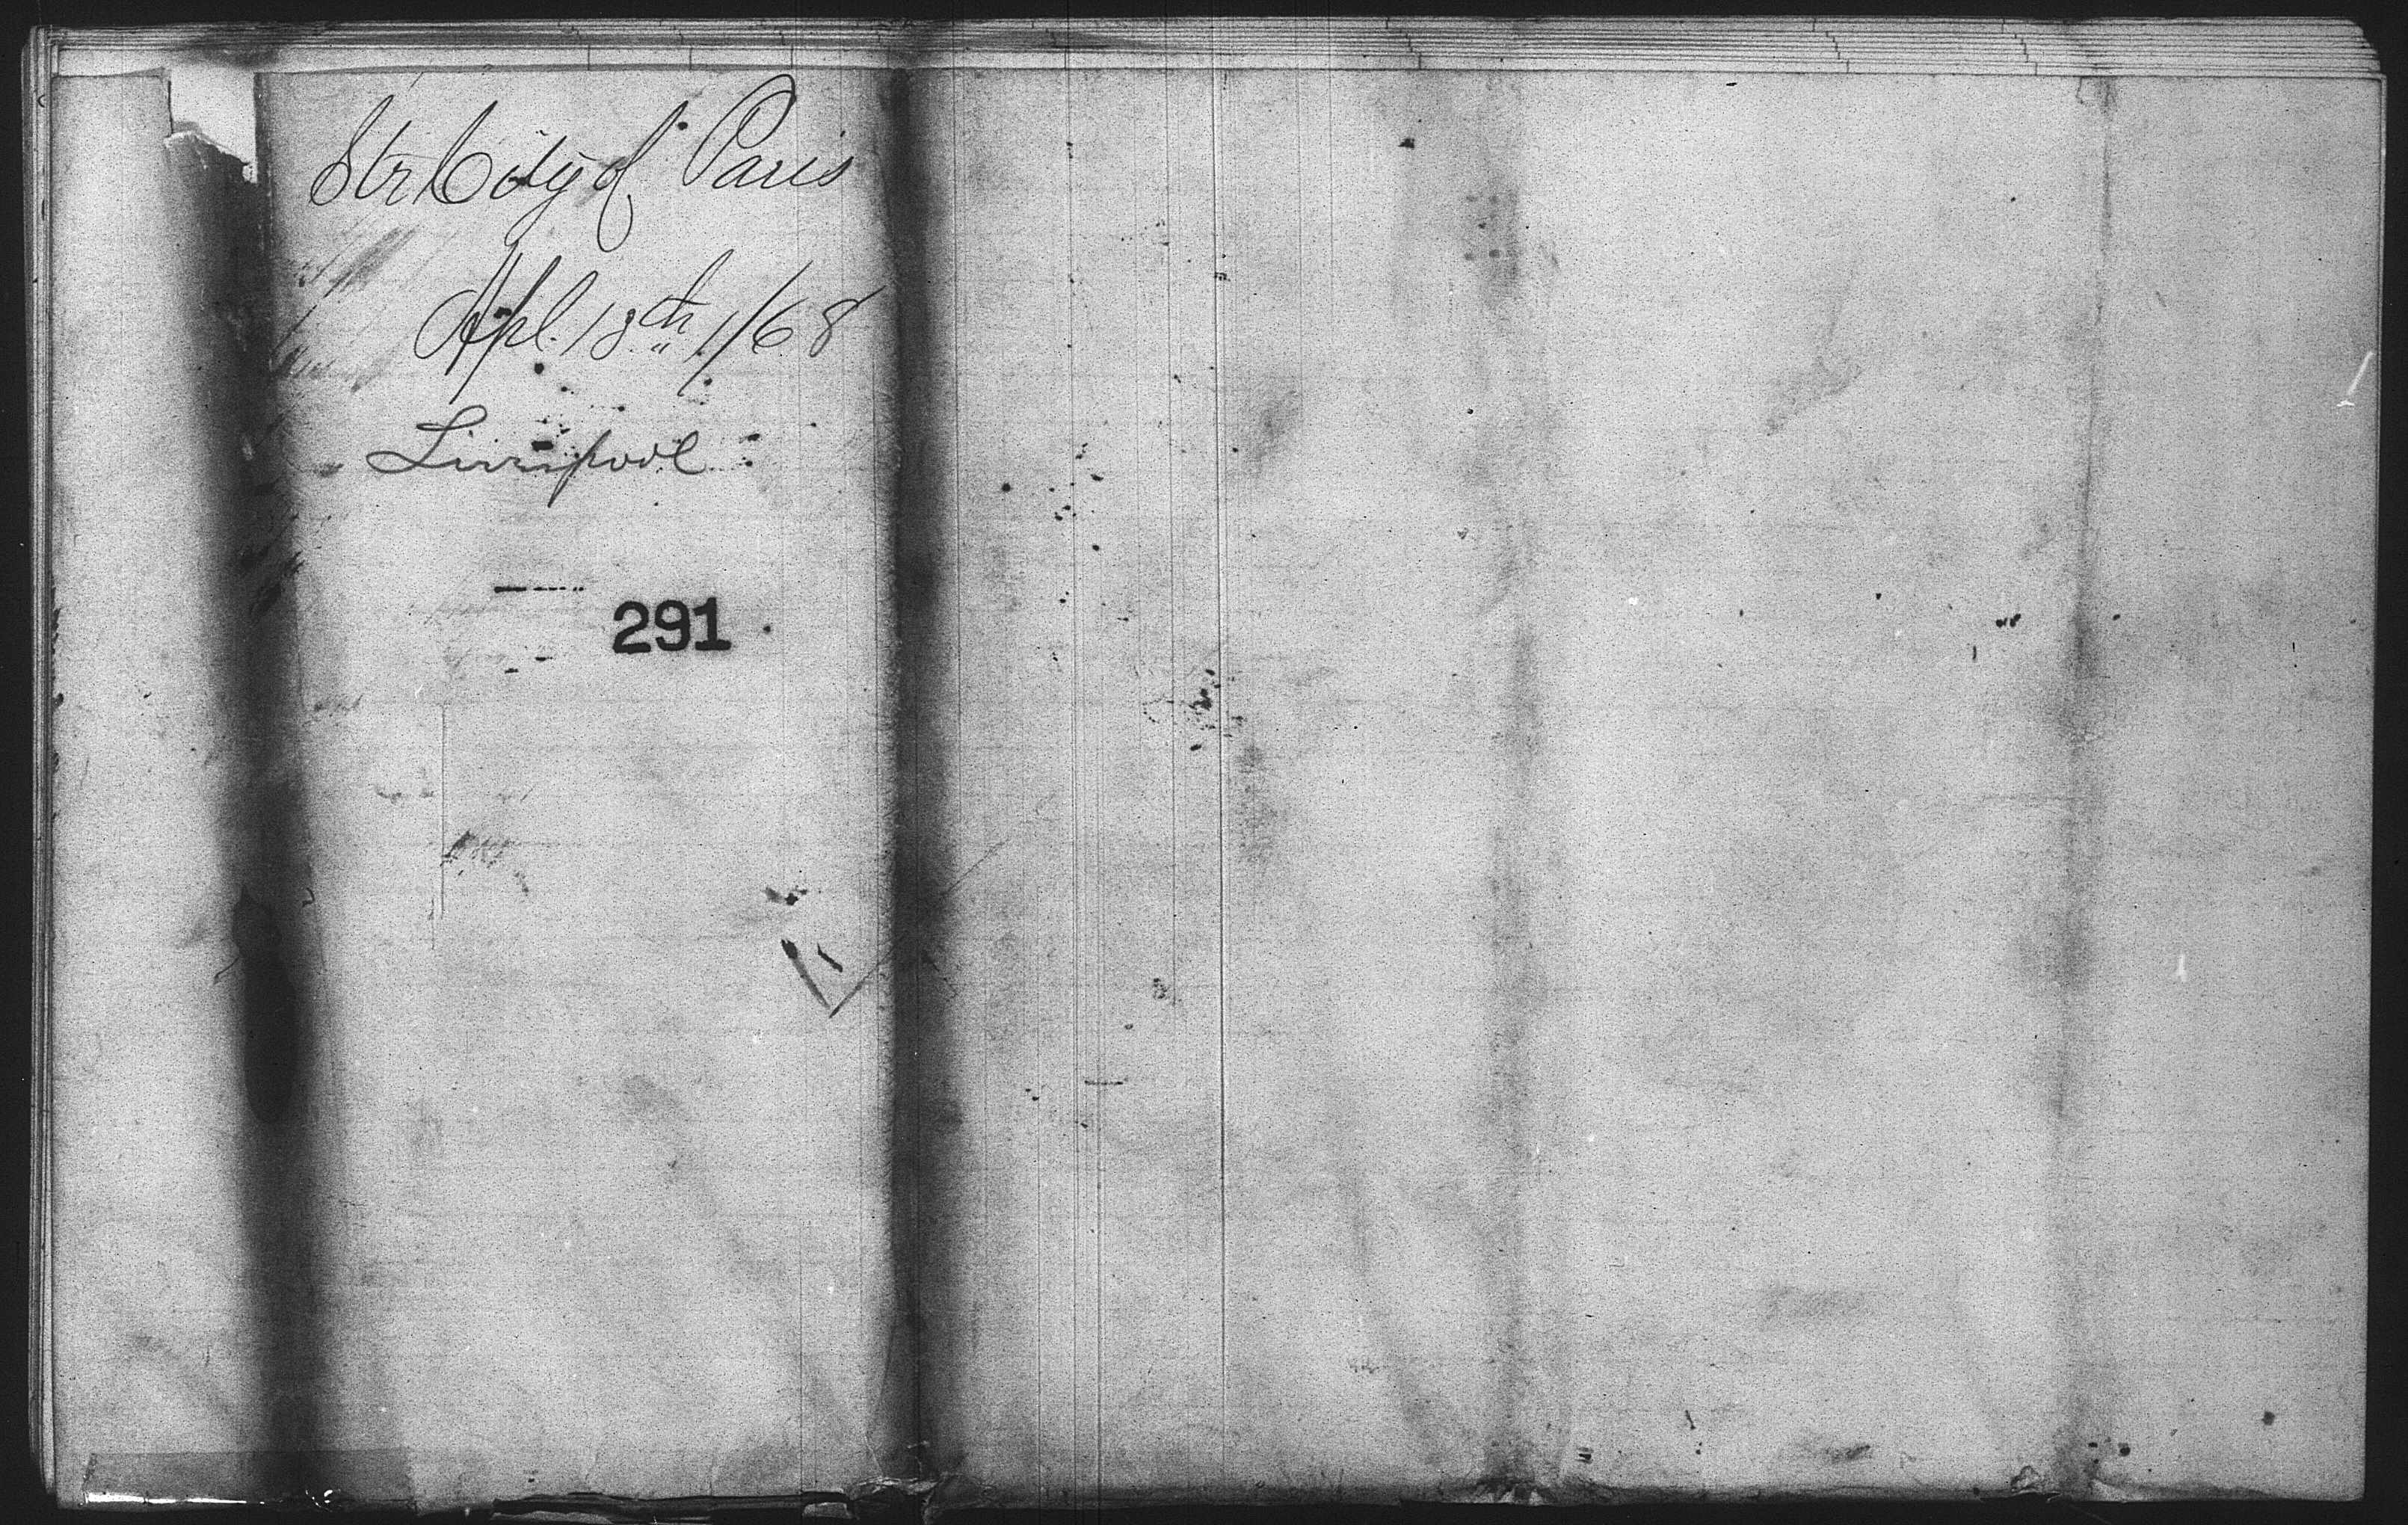 Str City of Paris
Apl. 18th 1/68
Liverpool
291